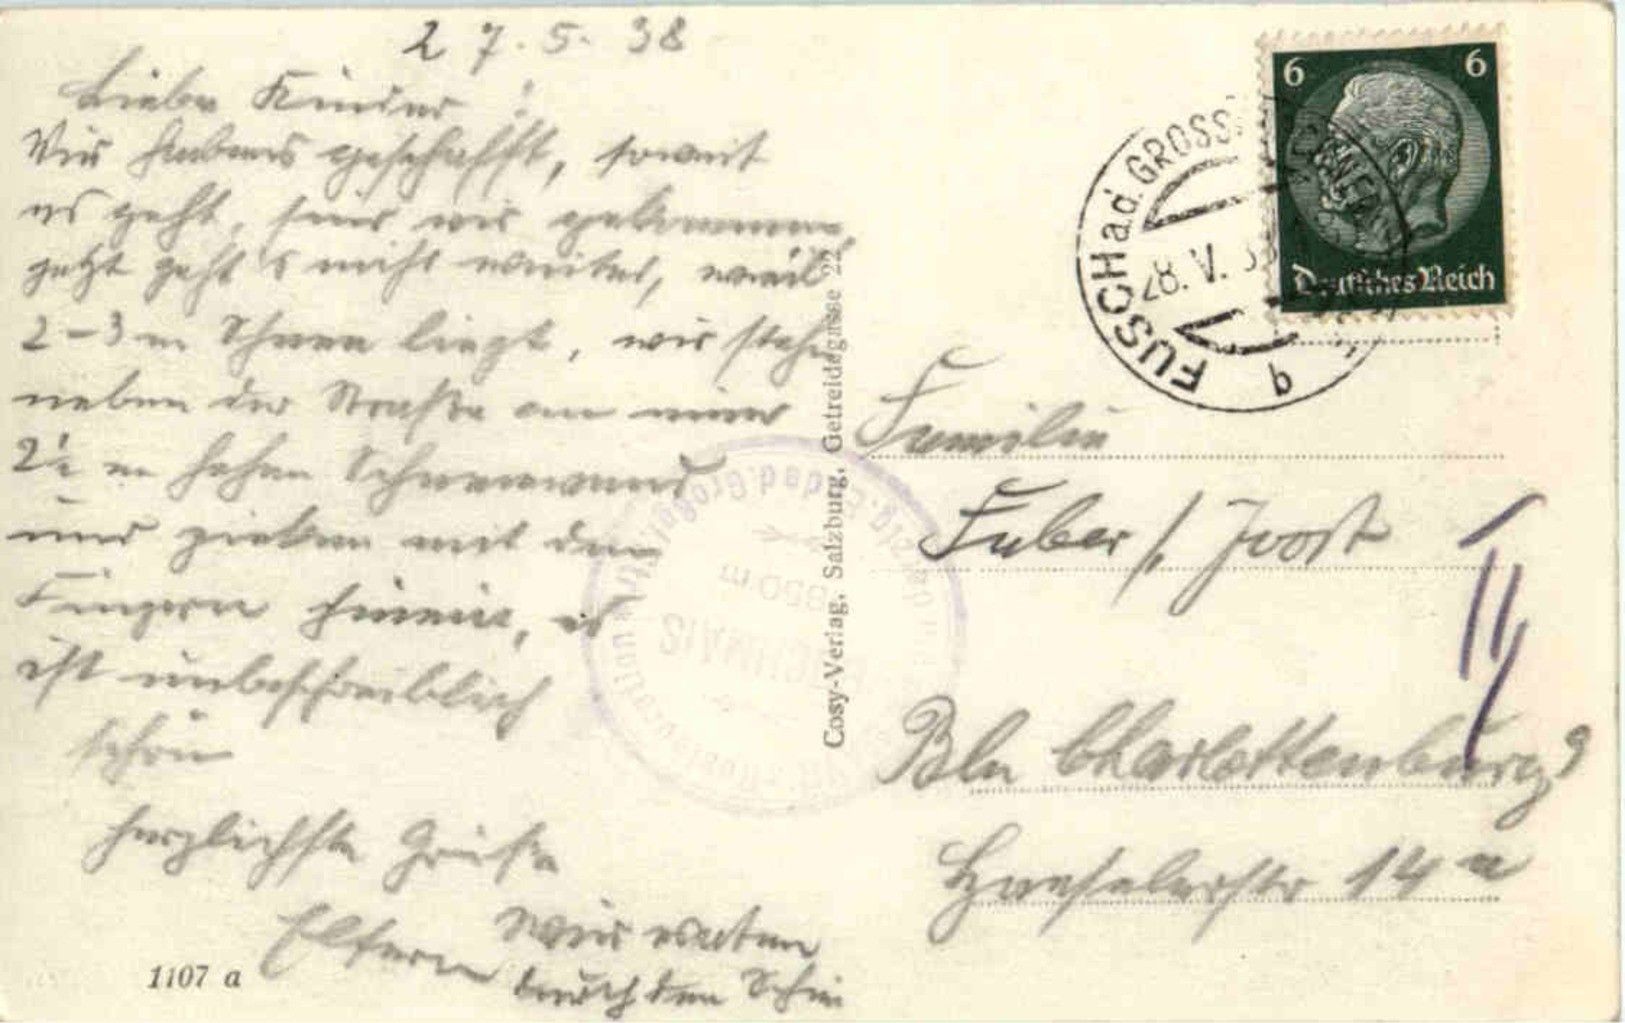 27.5.38
Liebe Kinder!
Wir habens geschafft, soweit
es geht, sind wir gekommen
jetzt geht's nicht weiter, weil
2-3 m Schnee liegt, wir stehn
neben der Straße an einer
2½ m hohen Schneewand
und pieken mit den
Fingern hinein, es
ist unbeschreiblich
schön
herzlichste Grüße
Eltern
Wir waten
durch den Schnee
1107 a
Cosy-Verlag, Salzburg, Getreidegasse 22
6 6
Deutsches Reich
FUSCH a.d. GROSSGLOCKNER
28. V. 38
Familie
Faber / Joost
Bln Charlottenburg 9
Haeselerstr 14 a